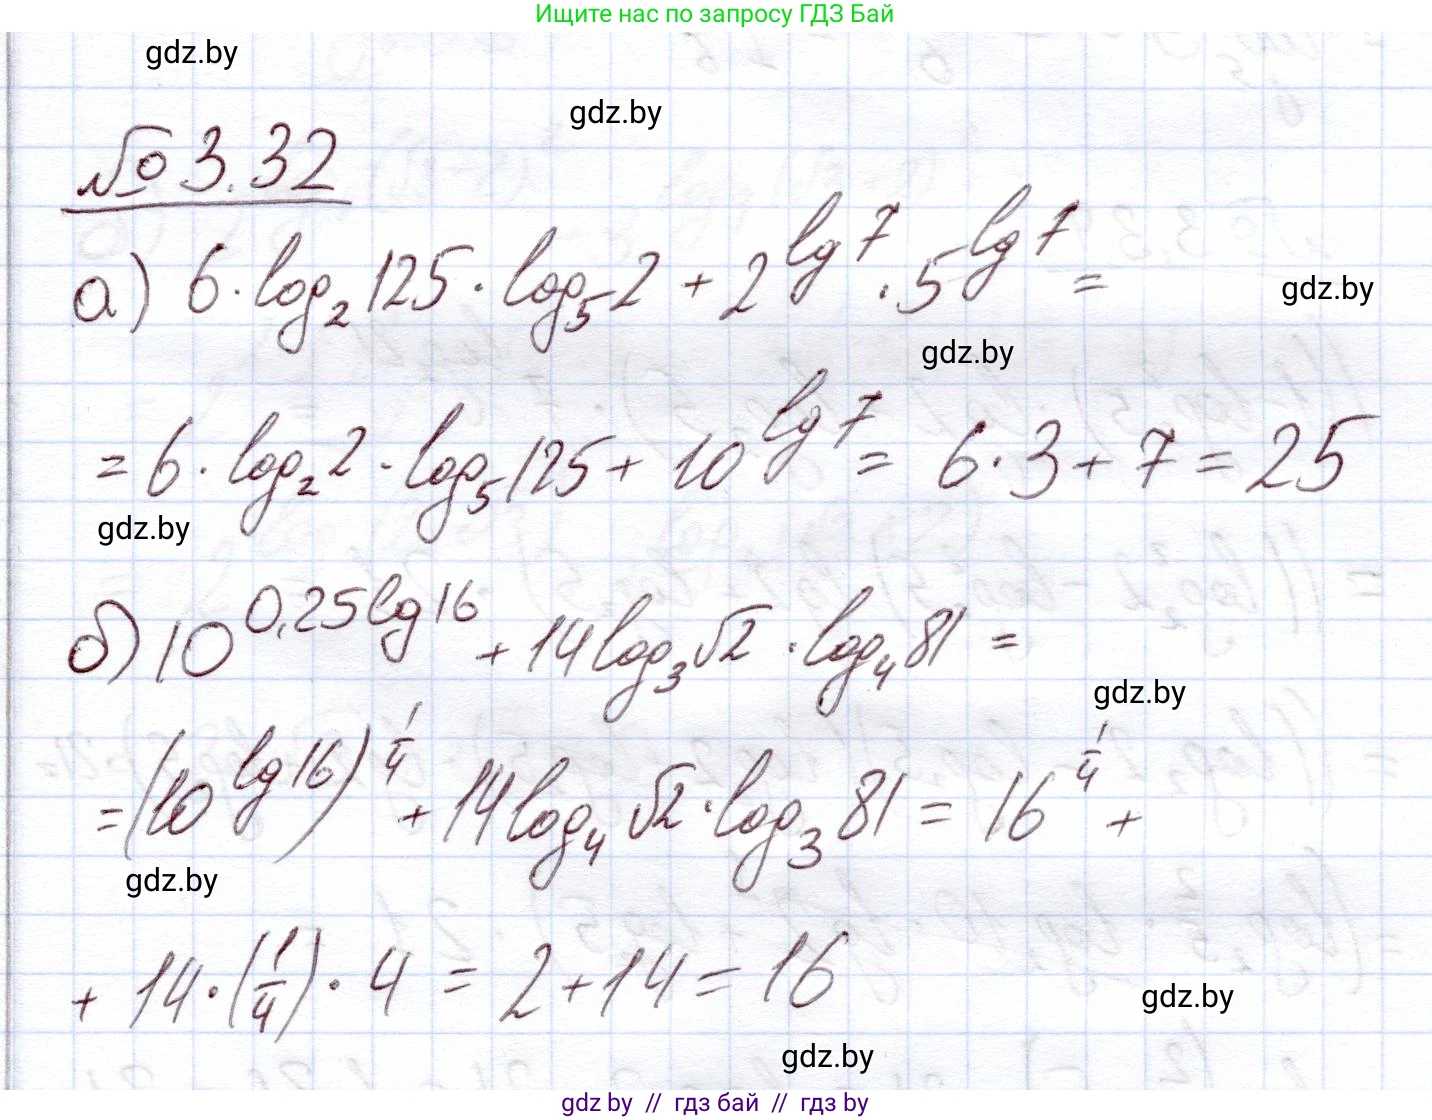 Ищите нас по запросу ГДЗ Бай
gdz.by
gdz.by
№ 3.32
а) 6·log₂125·log₅2 + 2^(lg 7)·5^(lg 7) =
gdz.by
gdz.by
= 6·log₂2·log₅125 + 10^(lg 7) = 6·3 + 7 = 25
gdz.by
б) 10^(0,25lg16) + 14log₃√2·log₄81 =
gdz.by
= (10^(lg16))^(1/4) + 14log₄√2·log₃81 = 16^(1/4) +
gdz.by
+ 14·(1/4)·4 = 2 + 14 = 16
gdz.by
gdz.by
gdz by // гдз бай // гдз by